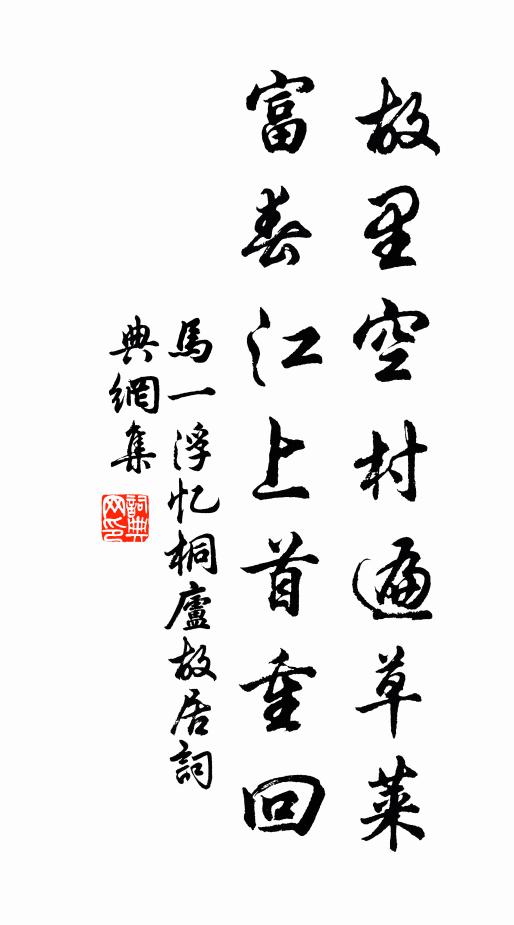 故里空村遍草萊
富春江上首重回
馬一浮忆桐廬故居詞
典網集
詞典网印